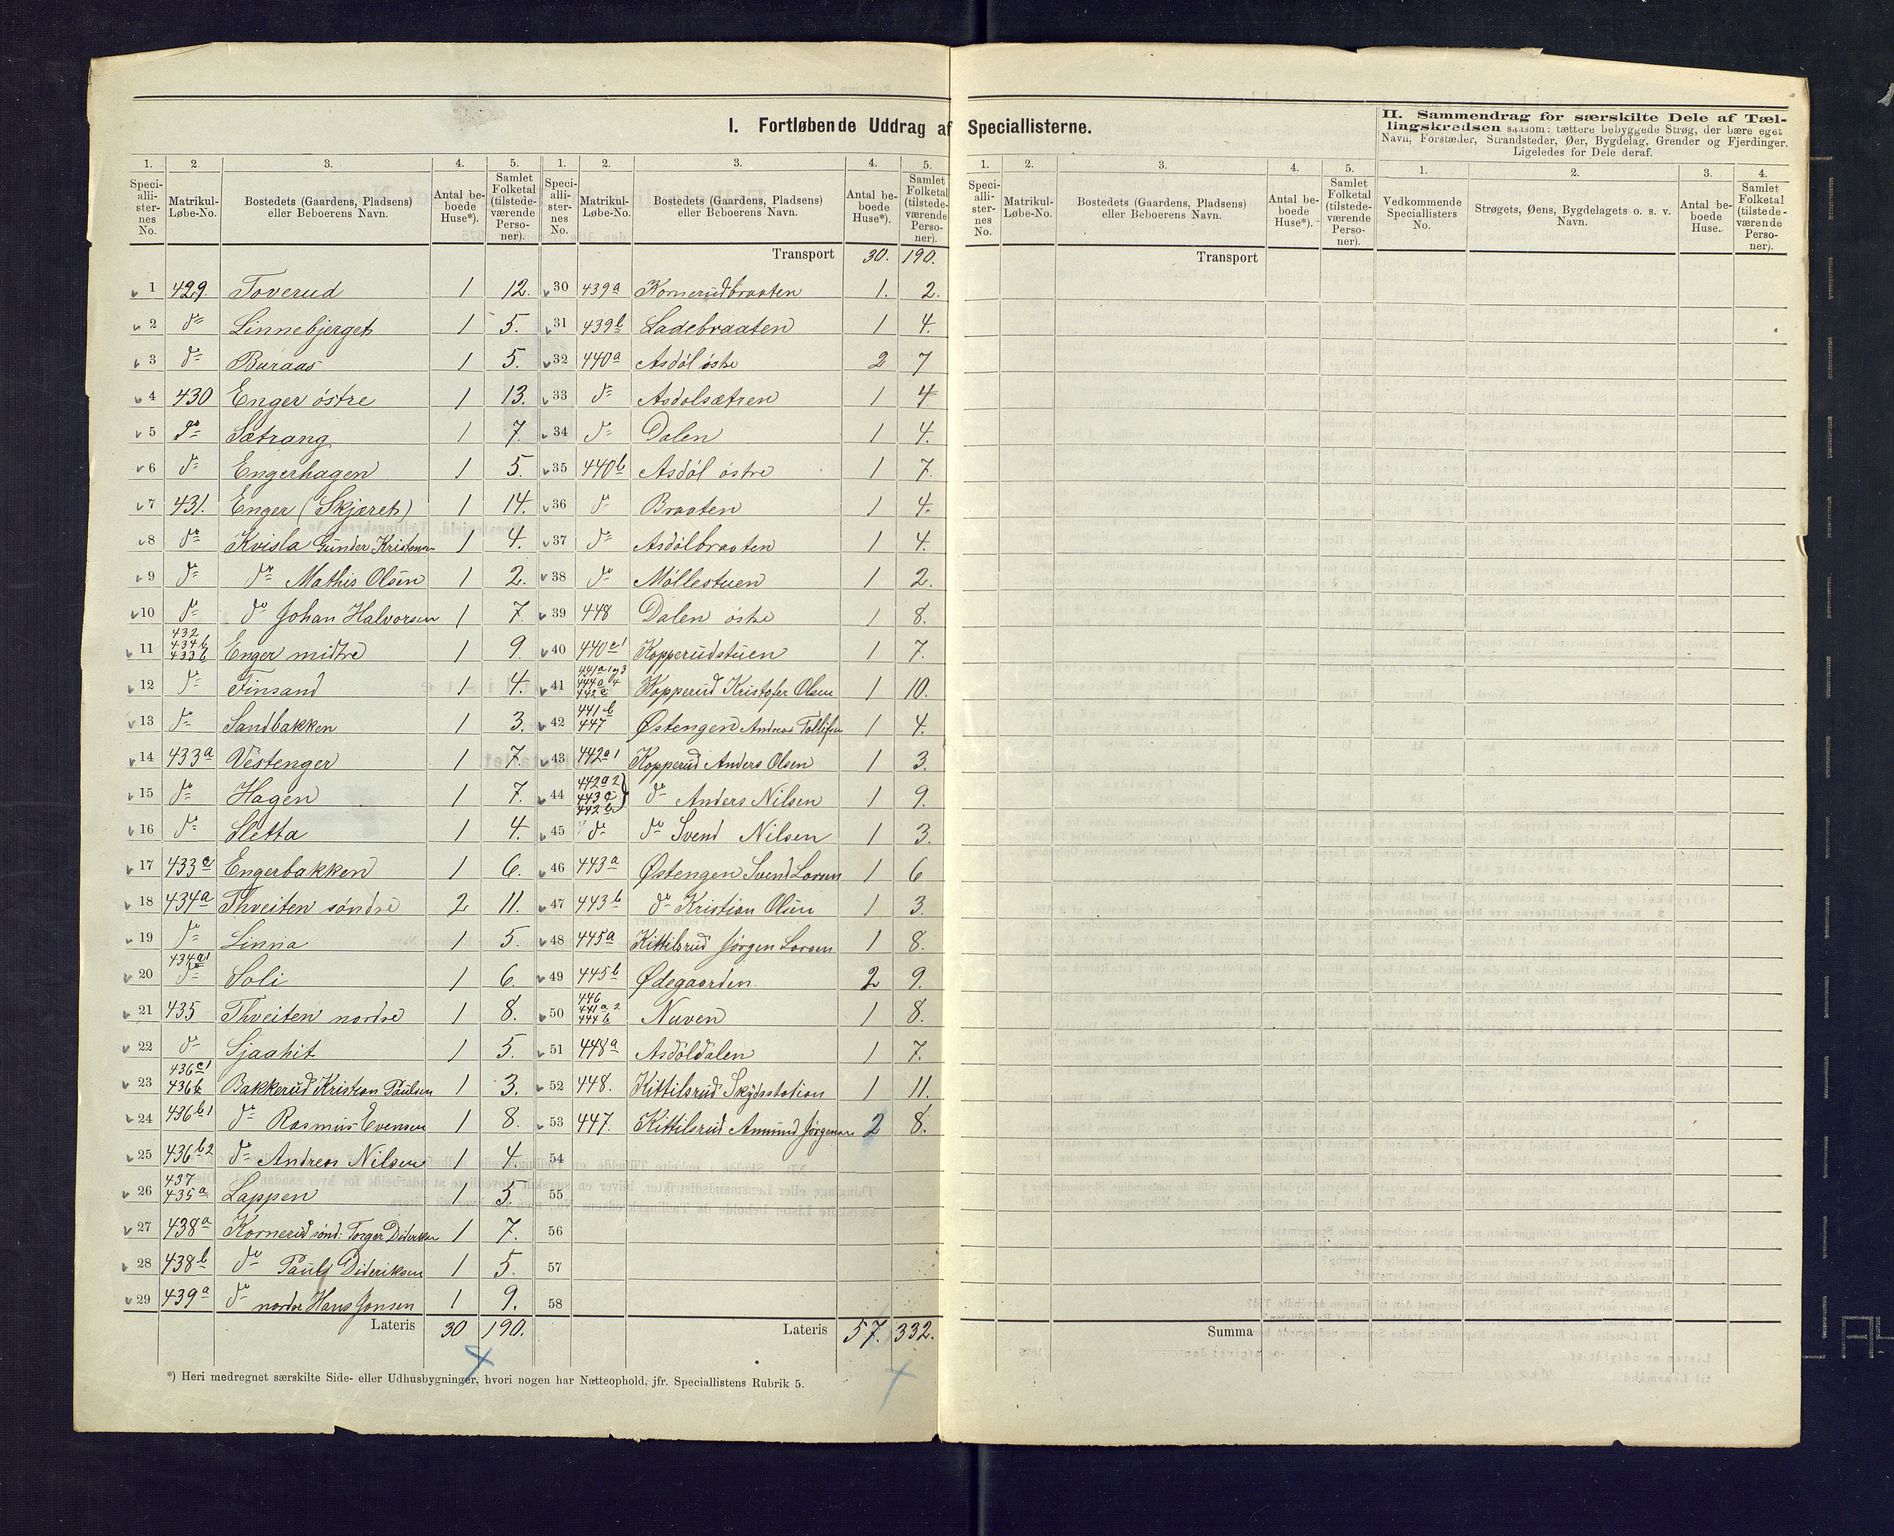 I. Fortløbende Uddrag af Speciallisterne.
II. Sammendrag for særskilte Dele af Tæl-
lingskredsen saasom: tættere bebyggede Strøg, der bære eget
Navn, Forstæder, Strandsteder, Øer, Bygdelag, Grender og Fjerdinger.
Ligeledes for Dele deraf.
1. 2. 3. 4. 5. 1. 2. 3. 4. 5. 1. 2. 3. 4. 5. 1. 2. 3. 4.
Speciallisternes No. Matrikul-Løbe-No. Bostedets (Gaardens, Pladsens) eller Beboerens Navn. Antal beboede Huse*). Samlet Folketal (tilstedeværende Personer).
Speciallisternes No. Matrikul-Løbe-No. Bostedets (Gaardens, Pladsens) eller Beboerens Navn. Antal beboede Huse*). Samlet Folketal (tilstedeværende Personer).
Speciallisternes No. Matrikul-Løbe-No. Bostedets (Gaardens, Pladsens) eller Beboerens Navn. Antal beboede Huse*). Samlet Folketal (tilstedeværende Personer).
Vedkommende Speciallisters No. Strøgets, Øens, Bygdelagets o. s. v. Navn. Antal beboede Huse. Samlet Folketal (tilstedeværende Personer).
1 429. Toverud 1 12.
2 do Linnebjerget 1 5.
3 do Buraas 1 5.
4 430 Enger østre 1 13.
5 do Sætrang 1 7.
6 do Engerhagen 1 5.
7 431. Enger (Skjæret) 1 14.
8 do Kvisla Gunder Kristensen 1 4.
9 do do Mathis Olsen 1 2.
10 do do Johan Halvorsen 1 7.
11 432 434b 433b Enger midtre 1 9.
12 do Finsand 1 4.
13 do Sandbakken 1 3.
14 433a Vestenger 1 7.
15 do Hagen 1 7.
16 do Sletta 1 4.
17 433c Engerbakken 1 6.
18 434a Thveiten søndre 2 11.
19 do Linna 1 5.
20 434a1 do Soli 1 6.
21 435 Thveiten nordre 1 8.
22 do Sjaahit 1 5.
23 436c1 436b Bakkerud Kristian Paulsen 1 3.
24 436b1 do Rasmus Evensen 1 8.
25 436b2 do Andreas Nilsen 1 4.
26 437 435a Lappen 1 5.
27 438a Kornerud sønd: Torger Dideriksen 1 7.
28 438b do Paul Dideriksen 1 5.
29 439a do nordre Hans Jonsen 1 9.
Lateris 30 190.
Transport 30. 190.
30 439a Kornerudbraaten 1. 2.
31 439b Ladebraaten 1 4.
32 440a Asdøl østre 2 7
33 do Asdølsætren 1 4
34 do Dalen 1 4.
35 440b Asdøl østre 1 7.
36 do Braaten 1 4.
37 do Asdølbraaten 1 4.
38 do Møllestuen 1 2.
39 448 Dalen østre 1 8.
40 440c1 Kopperudstuen 1 7.
41 441a1og3 444a4 442c Kopperud Kristofer Olsen 1 10.
42 441b 447 Østengen Andreas Tollefsen 1 4.
43 442a1 Kopperud Anders Olsen 1 3.
44 442a2 443c 442b do Anders Nilsen 1 9.
45 do do Svend Nilsen 1 3.
46 443a Østengen Svend Larsen 1 6
47 443b do Kristian Olsen 1 3.
48 445a Kittilsrud Jørgen Larsen 1 8.
49 445b Ødegaarden. 2 9.
50 446 441a2 444b Nuven 1 8.
51 448a Asdøldalen 1 7.
52 448. Kittilsrud Skydsstation 1 11.
53 447. Kittilsrud Amund Jørgensen 2 8.
54
55
56
57
58
Lateris 57. 332.
Transport
Summa
*) Heri medregnet særskilte Side- eller Udhusbygninger, hvori nogen har Natteophold, jfr. Speciallistens Rubrik 5.